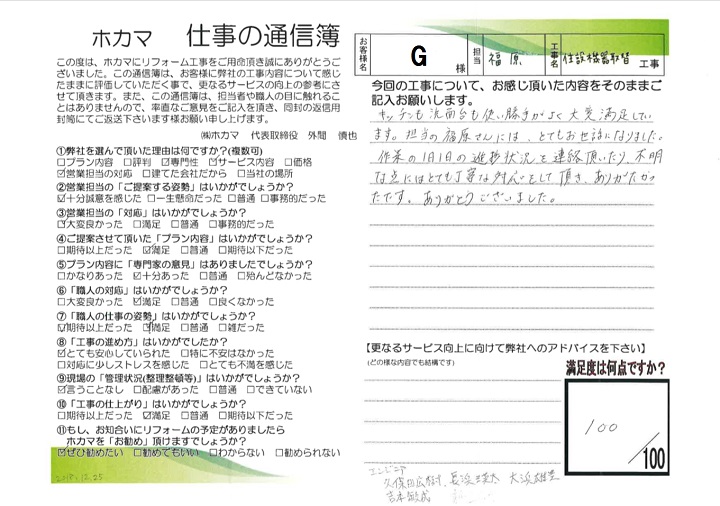 ホカマ 仕事の通信簿
この度は、ホカマにリフォーム工事をご用命頂き誠にありがとうございました。この通信簿は、お客様に弊社の工事内容について感じたままに評価していただく事で、更なるサービスの向上の参考にさせて頂きます。また、この通信簿は、担当者や職人の目に触れることはありませんので、率直なご意見をご記入を頂き、同封の返信用封筒にてご返送下さいます様お願い申し上げます。
㈱ホカマ 代表取締役 外間 慎也
①弊社を選んで頂いた理由は何ですか?(複数可)
□プラン内容 □評判 ☑専門性 ☑サービス内容 □価格
☑営業担当の対応 □建てた会社だから □当社の場所
②営業担当の「ご提案する姿勢」はいかがでしょうか?
☑十分誠意を感じた □一生懸命だった □普通 □事務的だった
③営業担当の「対応」はいかがでしょうか?
☑大変良かった □満足 □普通 □事務的だった
④ご提案させて頂いた「プラン内容」はいかがでしょうか?
□期待以上だった ☑満足 □普通 □期待以下だった
⑤プラン内容に「専門家の意見」はありましたでしょうか?
□かなりあった ☑十分あった □普通 □殆んどなかった
⑥「職人の対応」はいかがでしょうか?
□大変良かった ☑満足 □普通 □良くなかった
⑦「職人の仕事の姿勢」はいかがでしょうか?
☑期待以上だった ☑満足 □普通 □雑だった
⑧「工事の進め方」はいかがでしたか?
☑とても安心していられた □特に不安はなかった
□対応に少しストレスを感じた □とても不満を感じた
⑨現場の「管理状況(整理整頓等)」はいかがでしょうか?
☑言うことなし □配慮があった □普通 □できていない
⑩「工事の仕上がり」はいかがでしょうか?
□期待以上だった ☑満足 □普通 □期待以下だった
⑪もし、お知合いにリフォームの予定がありましたら
ホカマを「お勧め」頂けますでしょうか?
☑ぜひ勧めたい □勧めてもいい □わからない □勧められない
お客様名 G 様 担当 福原 工事名 住設機器取替 工事
今回の工事について、お感じ頂いた内容をそのままご記入お願いします。
キッチンも洗面台も使い勝手がよく大変満足してい
ます。担当の福原さんには、とてもお世話になりました。
作業の1日1日の進捗状況を連絡頂いたり、不明
な点にはとても丁寧な対応をして頂き、ありがたかっ
たです。ありがとうございました。
【更なるサービス向上に向けて弊社へのアドバイスを下さい】
(どの様な内容でも結構です)
満足度は何点ですか?
100
/100
エンジニア